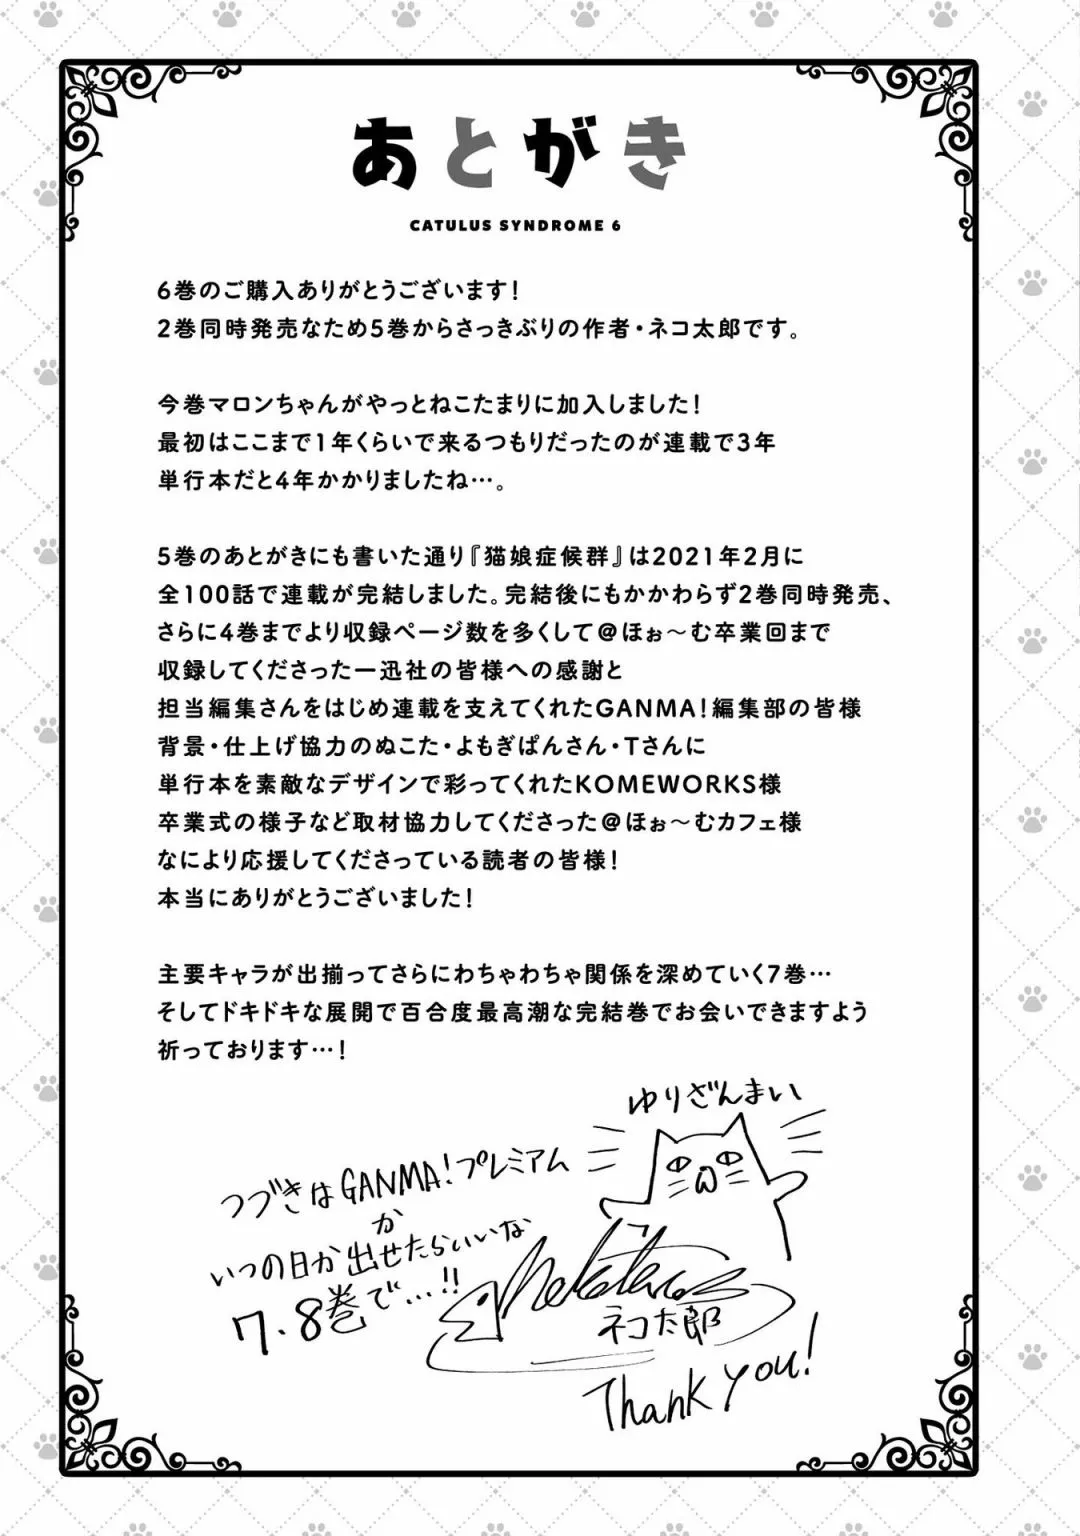 あとがき
CATULUS SYNDROME 6
6巻のご購入ありがとうございます!
2巻同時発売なため5巻からさっきぶりの作者・ネコ太郎です。
今巻マロンちゃんがやっとねこたまりに加入しました!
最初はここまで1年くらいで来るつもりだったのが連載で3年
単行本だと4年かかりましたね…。
5巻のあとがきにも書いた通り『猫娘症候群』は2021年2月に
全100話で連載が完結しました。完結後にもかかわらず2巻同時発売、
さらに4巻までより収録ページ数を多くして@ほぉ~む卒業回まで
収録してくださった一迅社の皆様への感謝と
担当編集さんをはじめ連載を支えてくれたGANMA!編集部の皆様
背景・仕上げ協力のぬこた・よもぎぱんさん・Tさんに
単行本を素敵なデザインで彩ってくれたKOMEWORKS様
卒業式の様子など取材協力してくださった@ほぉ~むカフェ様
なにより応援してくださっている読者の皆様!
本当にありがとうございました!
主要キャラが出揃ってさらにわちゃわちゃ関係を深めていく7巻…
そしてドキドキな展開で百合度最高潮な完結巻でお会いできますよう
祈っております…!
ゆりざんまい
つづきはGANMA!プレミアム
か
いつの日か出せたらいいな
7・8巻で…!!
Nekotaro
ネコ太郎
Thank you!